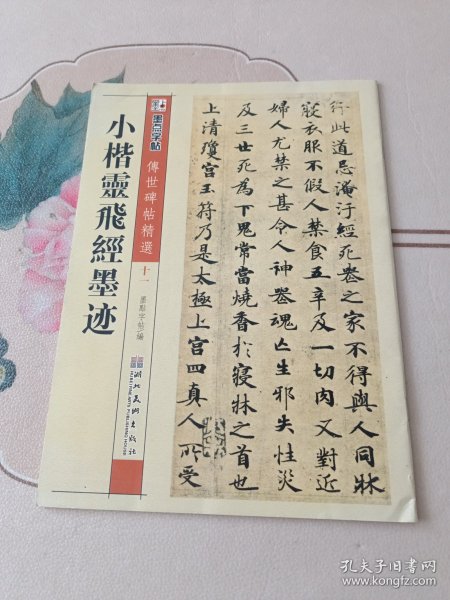 小楷靈飛經墨迹
墨点字帖
傳世碑帖精選
十一
墨點字帖 編
湖北美術出版社
HUBEI FINE ARTS PUBLISHING HOUSE
行此道忌淹汙經死喪之家不得與人同牀
寢衣服不假人禁食五辛及一切肉又對近
婦人尤禁之甚令人神喪魂亡生邪失性災
及三世死為下鬼常當燒香於寢牀之首也
上清瓊宮玉符乃是太極上宮四真人所受
孔夫子旧书网
www.kongfz.com